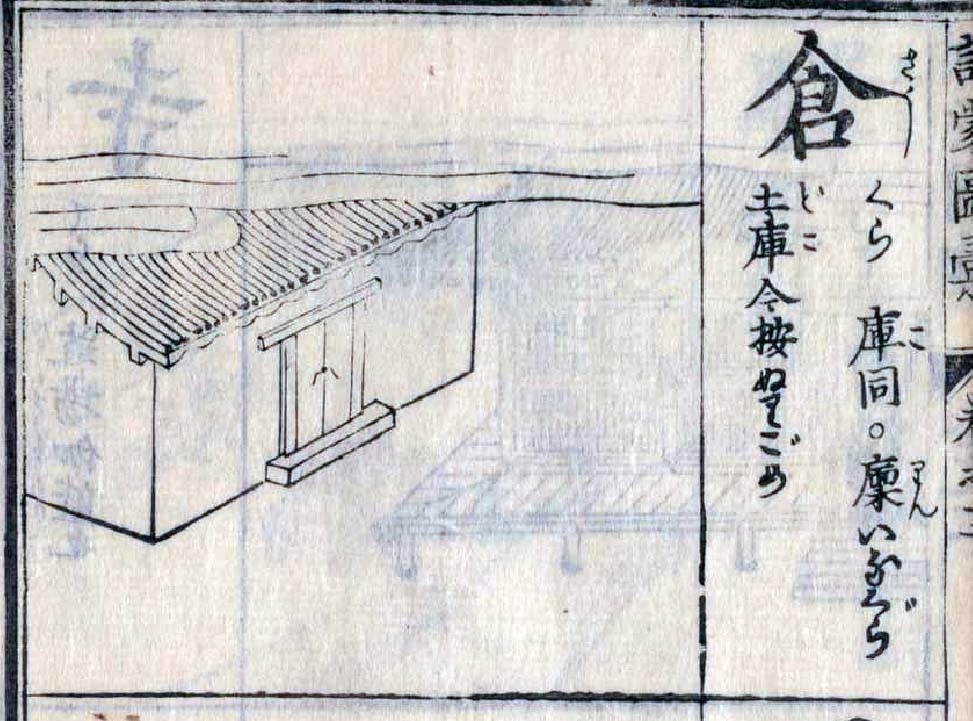 倉 さう
くら 庫同。廩いなぐら
こ りん
土庫今按ぬりごめ
どこ